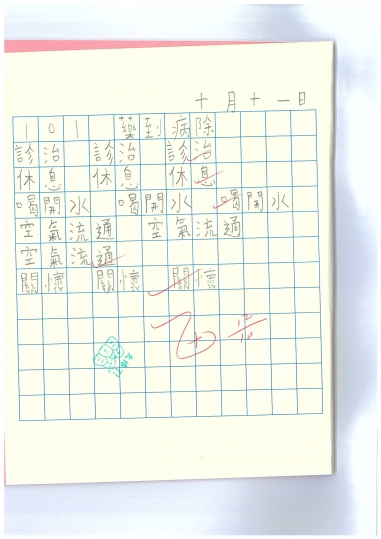 十月十一日
101 藥到病除
診治 診治 診治
休息 休息 休息
喝開水 喝開水 喝開水
空氣流通 空氣流通
空氣流通
關懷 關懷 關懷
乙+ 12/10